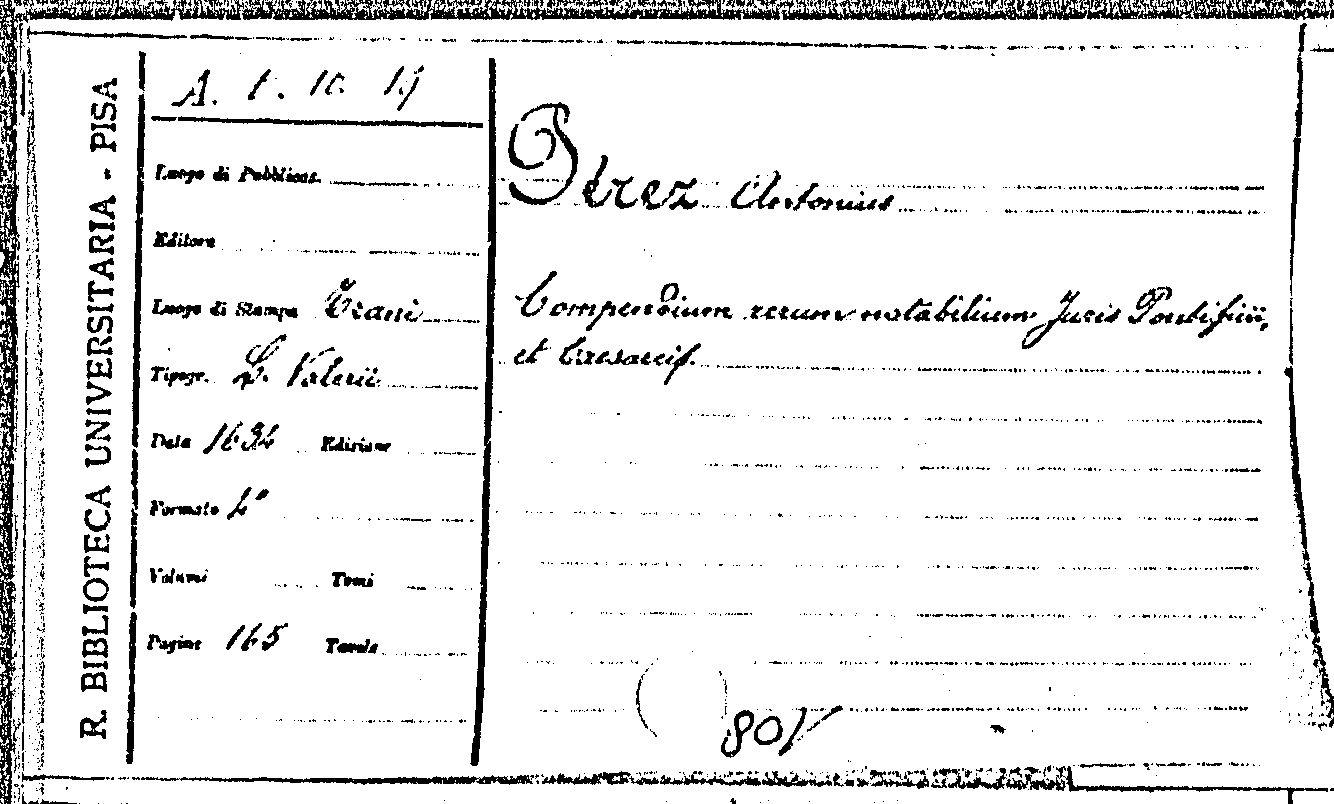 R. BIBLIOTECA UNIVERSITARIA - PISA
A. 1. 10. 19
Luogo di Pubblicaz.
Editore
Luogo di Stampa Trani
Tipogr. L. Valerii
Data 1634 Edizione
Formato 4°
Volumi Tomi
Pagine 165 Tavole
Pérez Antonius
Compendium rerum notabilium Juris Pontificii,
et Caesarei.
80V